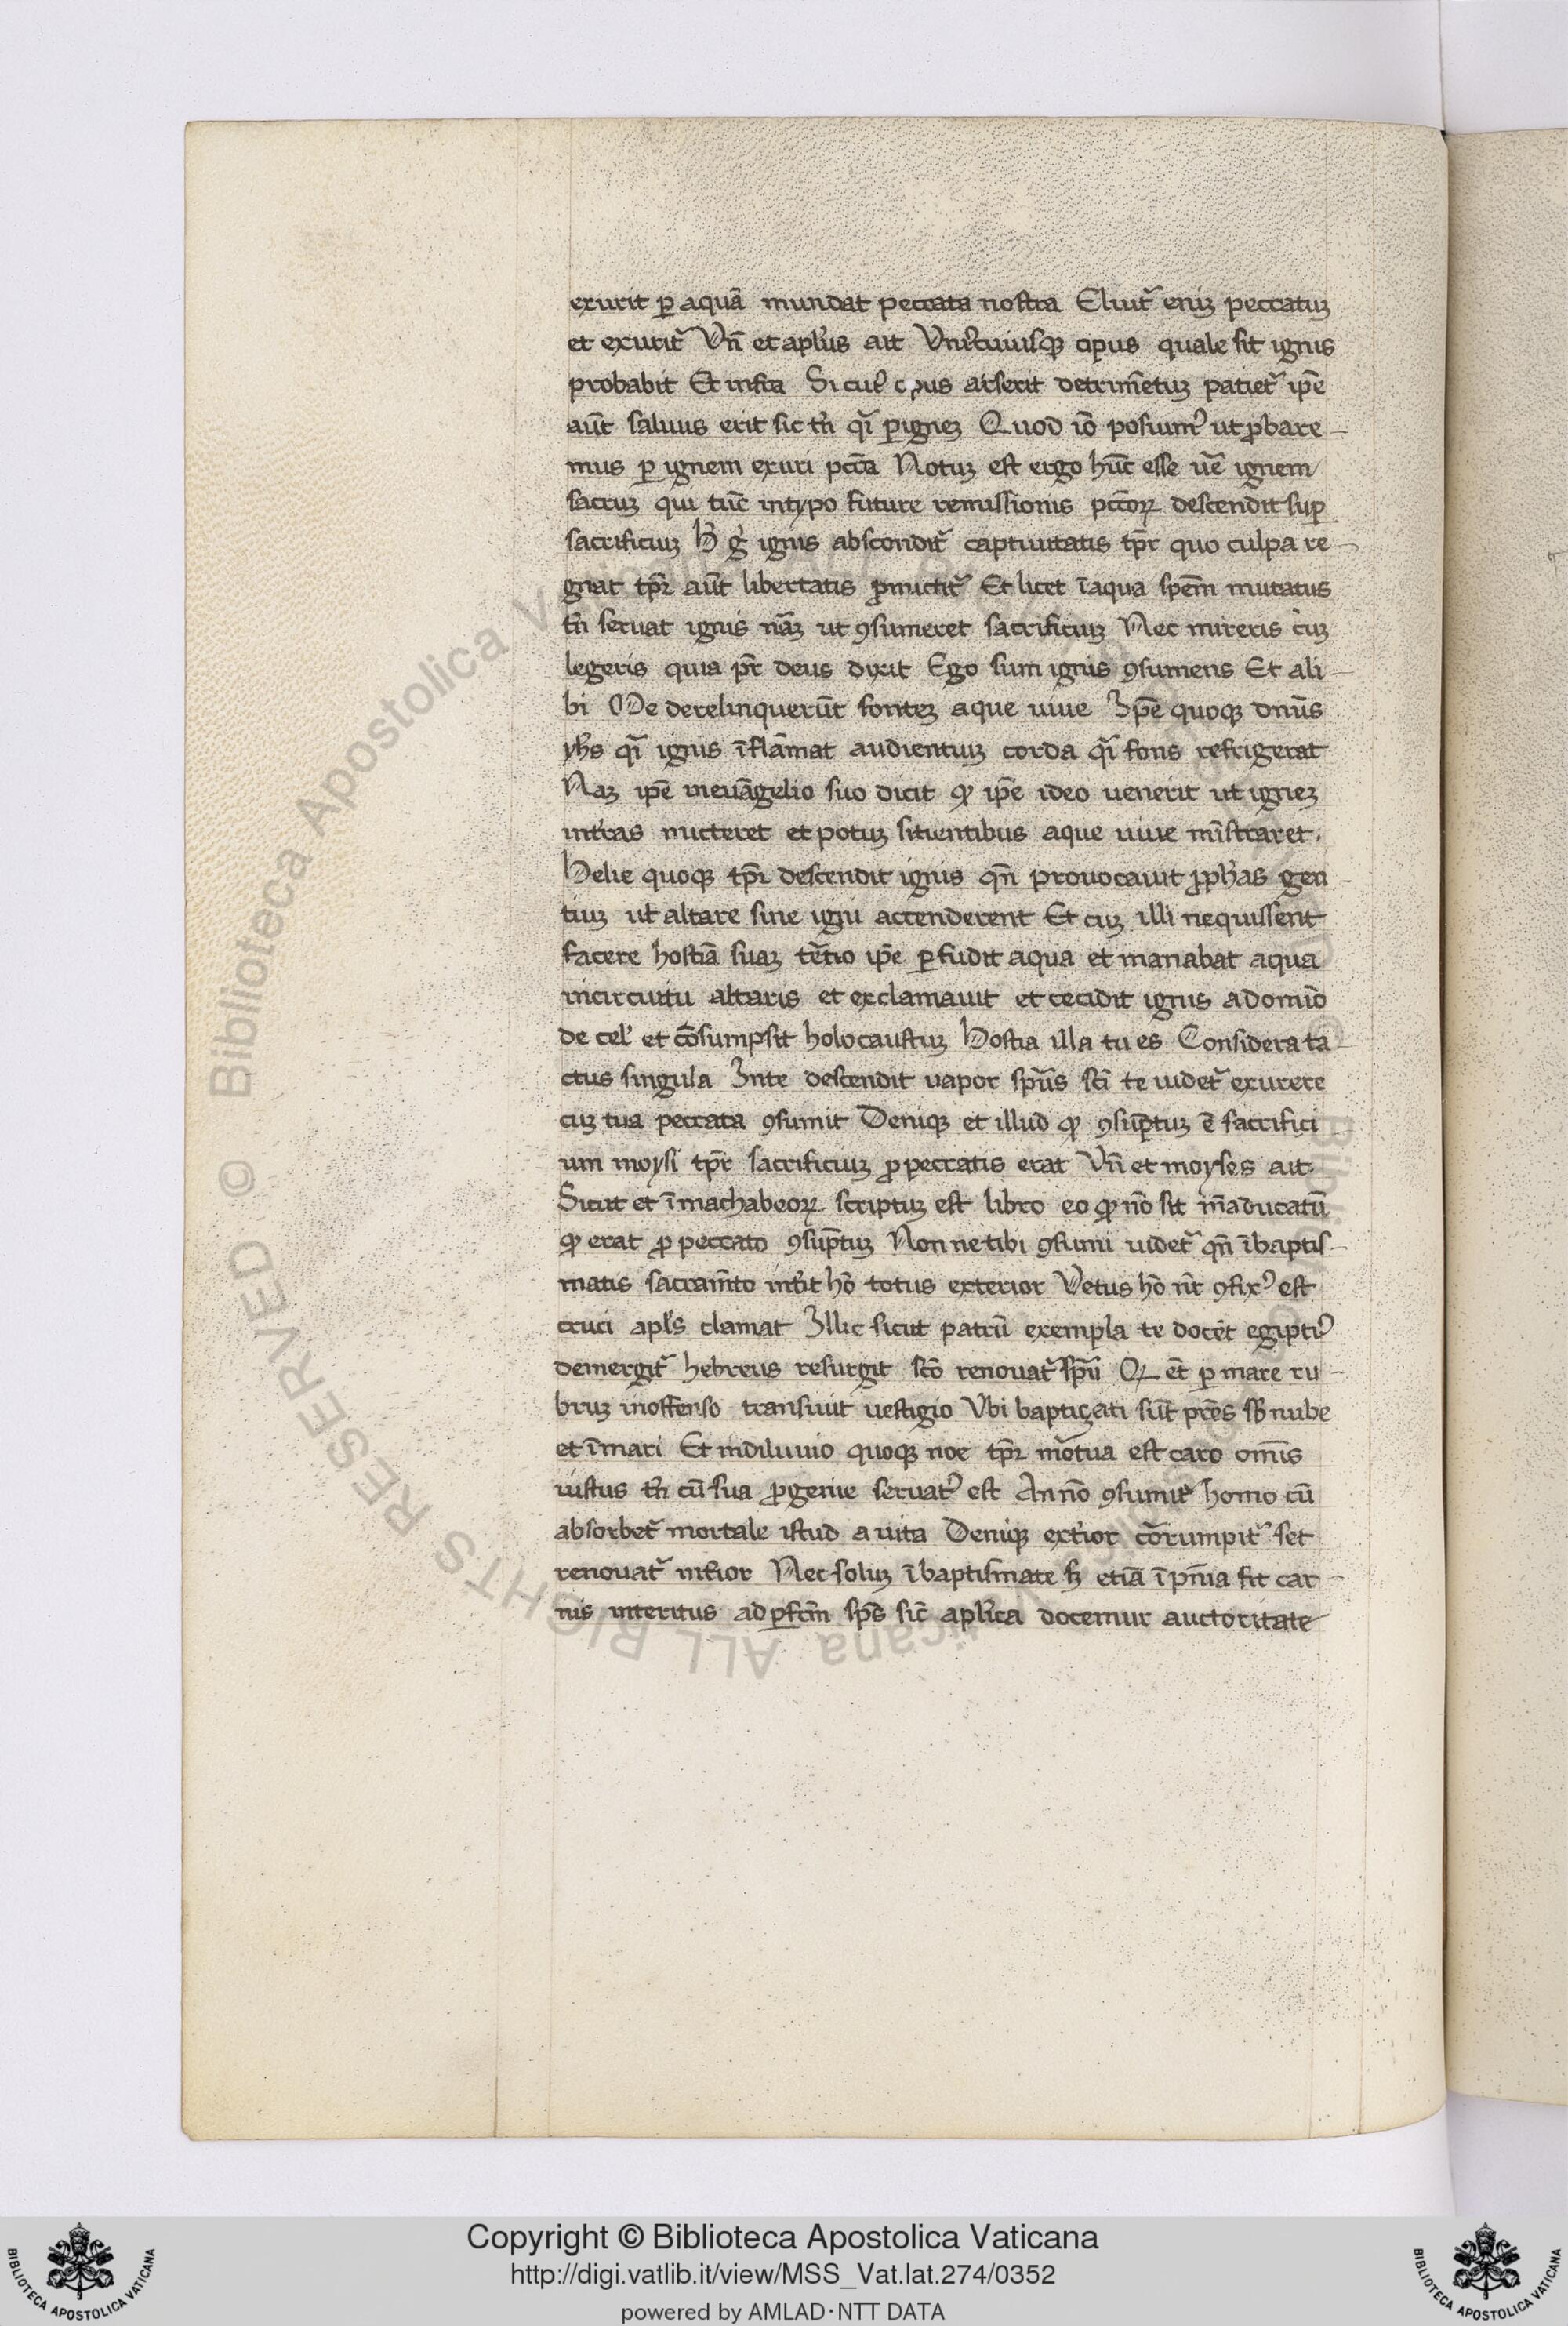 exurit ꝑ aquā mundat peccata nostra Eluit᷑ eniꝫ peccatuꝫ
et exurit᷑ Vn̄ et aplūs ait Vnicuiusqꝫ opus quale sit ignis
probabit Et infra Si cuiꝰ opus arserit detrim̄etuꝫ patiet᷑ ip̄e
aūt saluus erit sic tn̄ qi̅ ꝑ igneꝫ Quod iō posuimꝰ ut ꝓbare
mus ꝑ ignem exuri pccā Notuꝫ est ergo hūc esse ūe ignem
sacruꝫ qui tūc in typo future remissionis pccōꝝ descendit suꝑ
sacrificiuꝫ H̄ g̊ ignis abscondit᷑ captiuitatis tp̄r quo culpa re
gnat tp̄r aūt libertatis ꝓmictit᷑ Et licet ī aqua spēm mutatus
tn̄ seruat ignis nāꝫ ut ꝯsumeret sacrificiuꝫ Nec mireris cuꝫ
legeris quia pr̄ deus dixit Ego sum ignis ꝯsumens Et ali
bi Me derelinquerūt fonteꝫ aque uiue Ip̄e quoqꝫ dnūs
yhs̄ qi̅ ignis īflāmat audientiuꝫ corda qi̅ fons refrigerat
Naꝫ ip̄e in euāgelio suo dicit ꝙ ip̄e ideo uenerit ut igneꝫ
in t̄ras micteret et potuꝫ sitientibus aque uiue mīstraret.
Helie quoqꝫ tp̄r descendit ignis qn̄ prouocauit ꝓph̄as gen
tiuꝫ ut altare sine igni accenderent Et cuꝫ illi nequissent
facere hostiā suaꝫ t̄tio ip̄e ꝑfudit aqua et manabat aqua
in circuitu altaris et exclamauit et cecidit ignis a domīo
de cel̓ et cōsumpsit holocaustuꝫ Hostia illa tu es Considera ta
ctus singula In te descendit uapor spūs sc̄i te uidet᷑ exurere
cuꝫ tua peccata ꝯsumit Deniqꝫ et illud ꝙ ꝯsūptuꝫ ē sacrifici
um moysi tp̄r sacrificiuꝫ ꝓ peccatis erat Vn̄ et moyses ait.
Sicut et ī machabeoꝝ scriptuꝫ est libro eo ꝙ nō sit m̄aducatū
ꝙ erat ꝓ peccato ꝯsūptuꝫ Non ne tibi ꝯsumi uidet᷑ qn̄ ī baptis
matis sacram̄to int̄it hō totus exterior Vetus hō nr̄ ꝯfixꝰ est
cruci apl̄s clamat Illic sicut patrū exempla te docēt egiptiꝰ
demergit᷑ hebreus resurgit scō renouat᷑ spū Qꝝ ēt ꝑ mare ru
bruꝫ inoffenso transiuit uestigio Vbi baptiçati sūt prēs sƀ nube
et ī mari Et in diluuio quoqꝫ noe tp̄r mōtua est caro om̄is
iustus tn̄ cū sua ꝓgenie seruatꝰ est An nō ꝯsumit᷑ homo cū
absorbet᷑ mortale istud a uita Deniqꝫ ext̄ior cōrumpit᷑ set
renouat᷑ int̄ior Nec soluꝫ ī baptismate sꝫ etiā ī pn̄ia fit car
nis interitus ad ꝑfc̄m sp̄s sic̄ apl̄ica docemur auctoritate
Copyright © Biblioteca Apostolica Vaticana
http://digi.vatlib.it/view/MSS_Vat.lat.274/0352
powered by AMLAD·NTT DATA